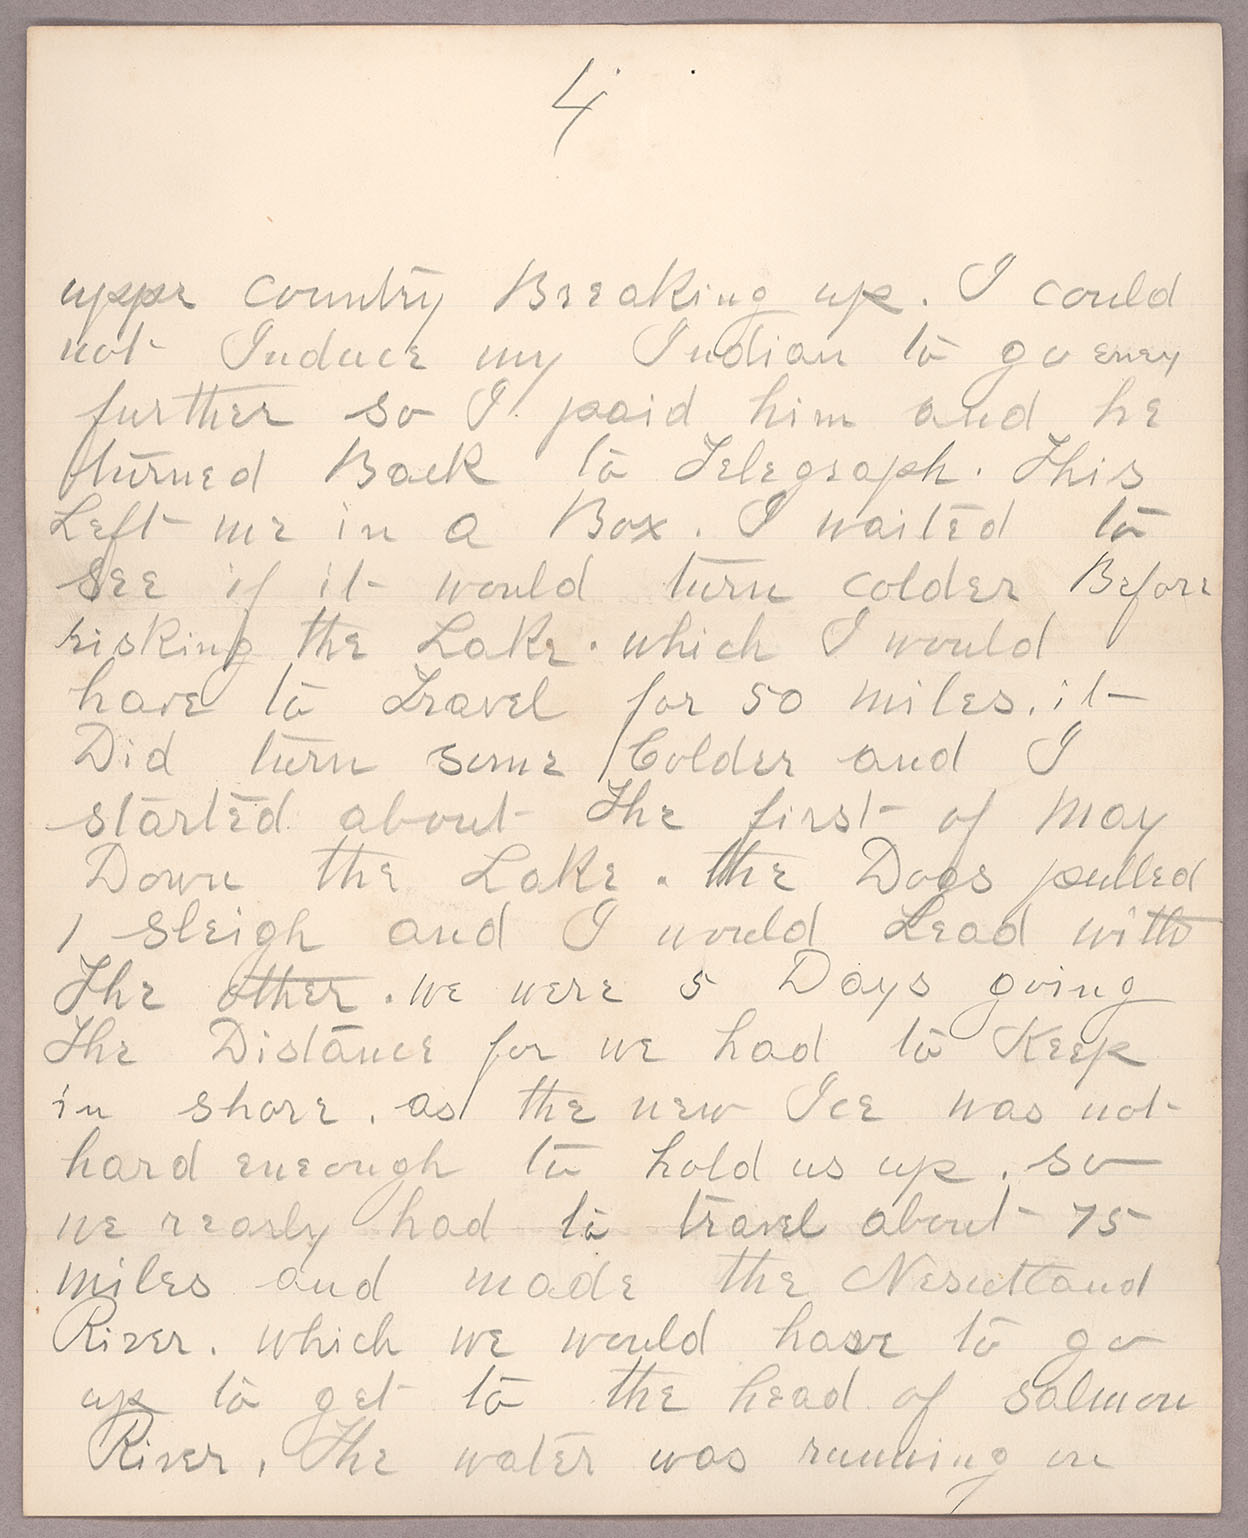 4
uppr country Breaking up. I could
not Induce my Indian to go eney
further so I paid him and he
turned Back to Telegraph. This
Left me in a Box. I waited to
see if it would turn colder Before
risking the Lake. which I would
have to Travel for 50 miles. it
Did turn some Colder and I
started about The first of May
Down the Lake. the Dogs pulled
1 sleigh and I would Lead with
The other. we were 5 Days going
The Distance for we had to Keep
in shore. as the new Ice was not
hard eneough to hold us up. so
we realy had to travel about 75
miles and made the Nesuttand
River. which we would have to go
up to get to the head of salmon
River. The water was running on